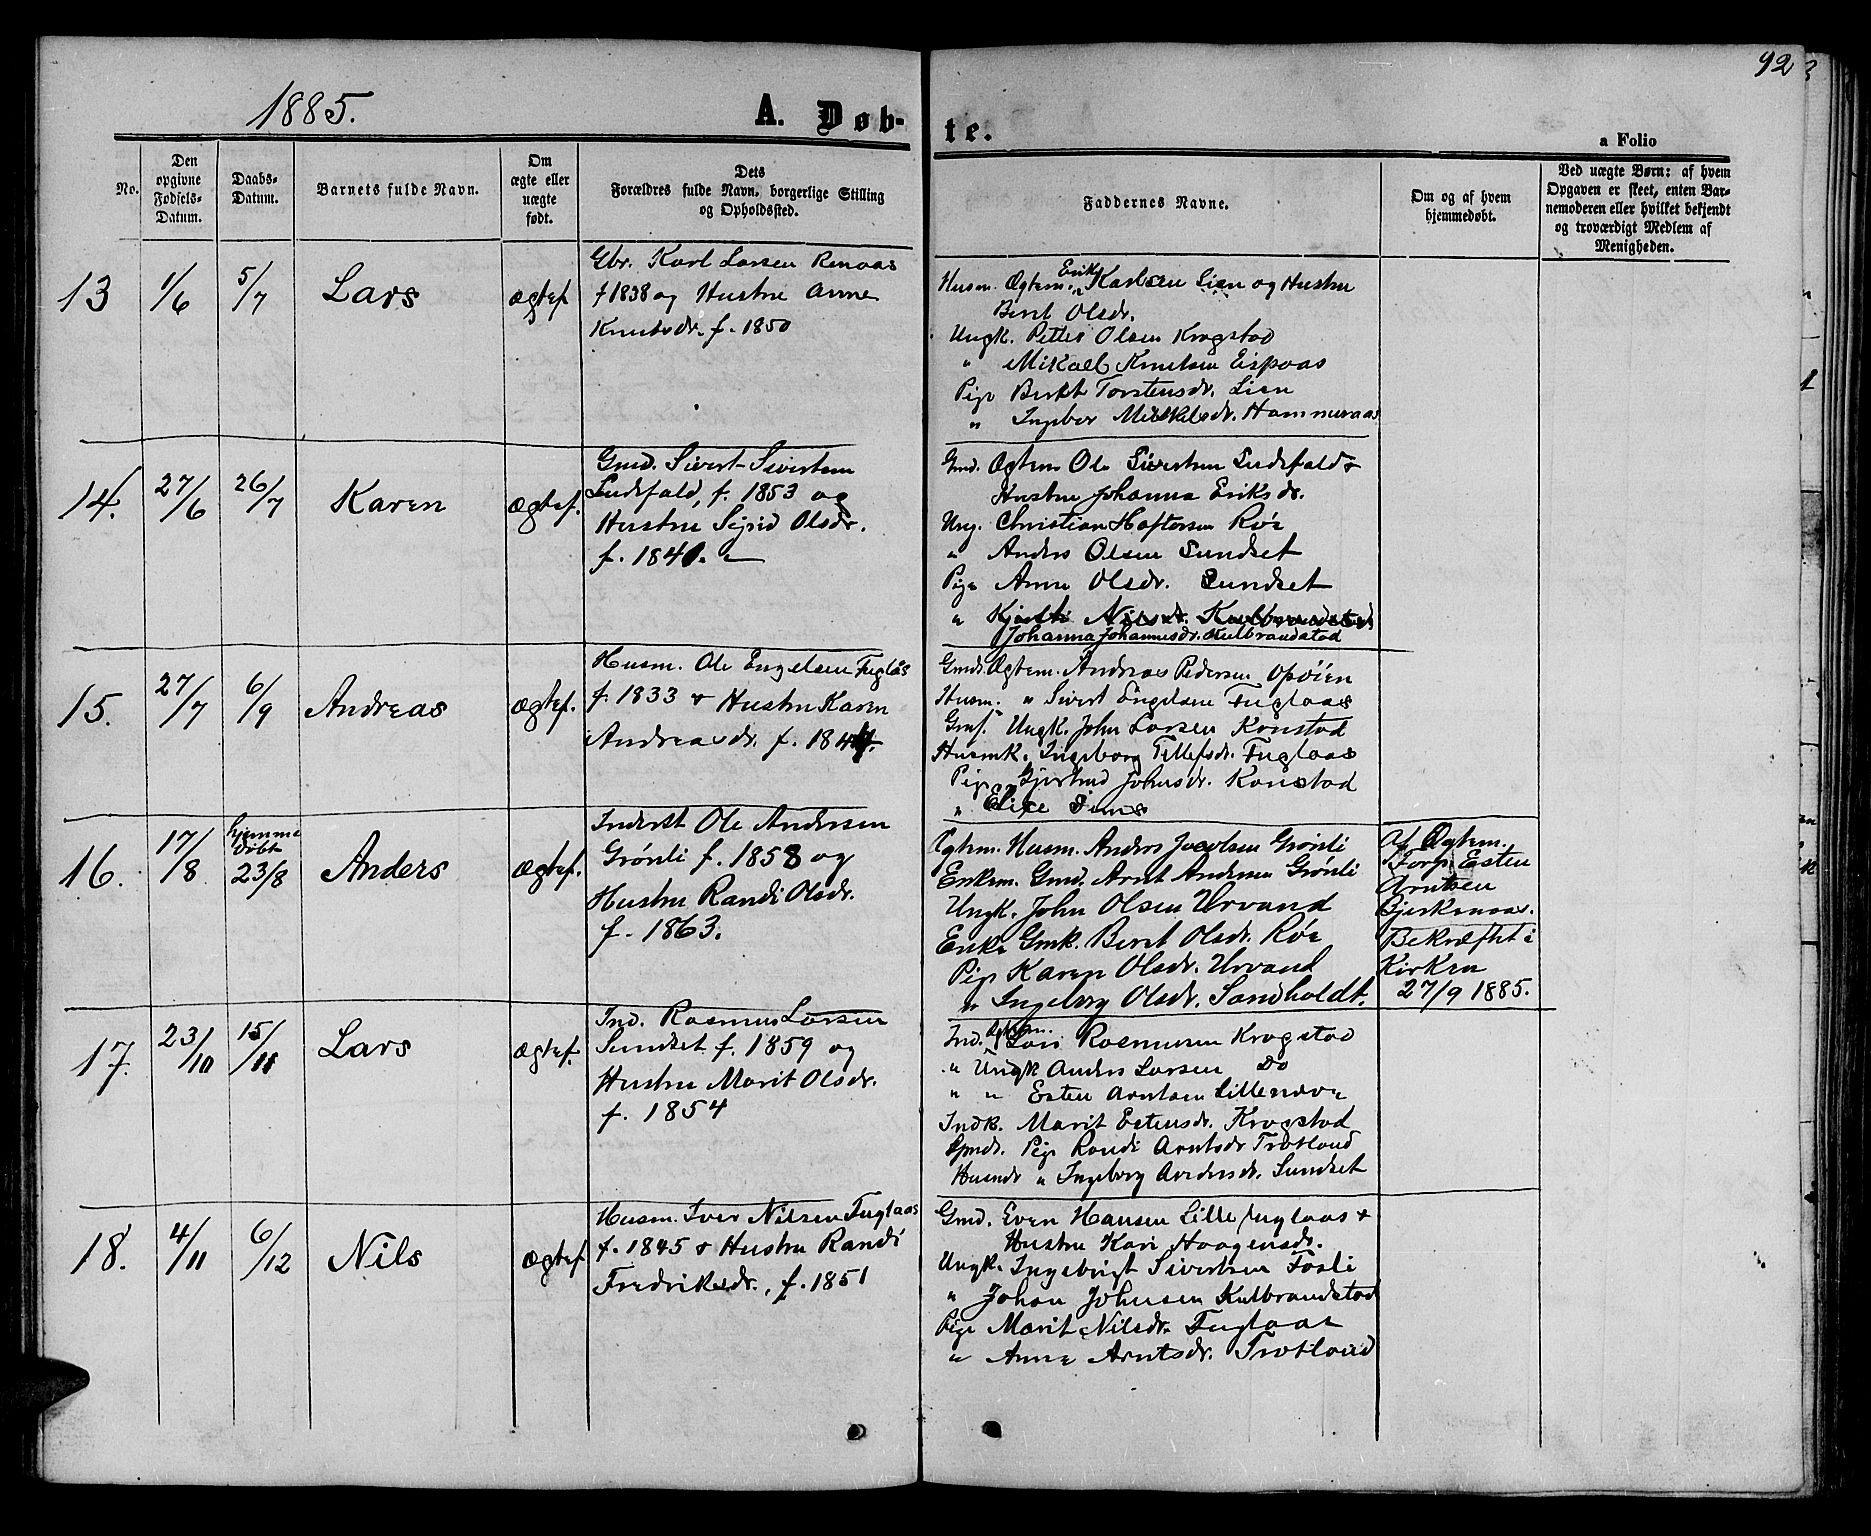 92
1885.
A. Døb-
te.
a Folio
No.
Den opgivne Fødsels-Datum.
Daabs-Datum.
Barnets fulde Navn.
Om ægte eller uægte født.
Dets Forældres fulde Navn, borgerlige Stilling og Opholdssted.
Faddernes Navne.
Om og af hvem hjemmedøbt.
Ved uægte Børn: af hvem Opgaven er skeet, enten Barnemoderen eller hvilket bekjendt og troværdigt Medlem af Menigheden.
13
1/6
5/7
Lars
Ægtef.
Gbr. Karl Larsen Renaas
f 1838 og Hustru Anne
Knutsdr. f. 1850
Husm. Ægtem. Erik Karlsen Lien og Hustru
Berit Olsdr.
Ungk. Petter Olsen Krogstad
" Mikael Knutsen Espaas
Pige Berit Torstensdr. Lien
" Ingebor Mikkelsdr. Hammeraas
14.
27/6
26/7
Karen
Ægtef.
Gmd. Sivert Sivertsen
f. 1853 og
Hustru Sigrid Olsdr.
f. 1840.
Gmd. Ægtem Ole Sivertsen
Hustru Johanna Eriksdr.
Ung. Christian Haftorsen Röe
" Anders Olsen Sundset
Pige Anne Olsdr. Sundset
" Kjersti Nilsdr. Kulbrandstad
Johanna Johannesdr. Kulbrandstad
15.
27/7
6/9
Andreas
Ægtef.
Husm. Ole Engelsen Fuglås
f. 1833 & Hustru Karen
Andreasdr. f. 1844.
Gmd. Ægtem. Andreas Pedersen Opöien
Husm. " Sivert Engelsen Fuglaas
Gms. Ungk. John Larsen Konstad
Husmk. Ingeborg Tellefsdr. Fuglaas
Pige Gjertrud Johnsdr. Konstad
" Elise Dens
16.
17/8
hjemme
döbt
23/8
Anders
Ægtef.
Inderst Ole Andersen
Grönli f. 1858 og
Hustru Randi Olsdr.
f. 1863.
Ægtem. Husm. Anders Jacobsen Grönli
Enkem. Gmd. Arnt Andersen Grönli
Ungk. John Olsen Urvand
Enke Gmk. Berit Olsdr. Röe
Pige Karen Olsdr. Urvand
" Ingeborg Olsdr. Sandholdt.
Af Ægtem.
Forp. Esten
Arntsen
Bjerkenaas.
Bekræftet i
Kirken
27/9 1885.
17.
23/10
15/11
Lars
Ægtef.
Ind. Rasmus Larsen
Sundset f. 1859 og
Hustru Marit Olsdr.
f. 1854
Ind. Ægtem. Lars Rasmussen Krogstad
" Ungk Anders Larsen Do
" " Esten Arntsen
Indk. Marit Estensdr. Krogstad
Gmdr. Pige Randi Arntsdr Trotland
Husmdr " Ingeborg Andersdr. Sundset
18.
4/11
6/12
Nils
Ægtef
Husm. Iver Nilsen Fuglaas
f. 1845 & Hustru Randi
Fredriksdr., f. 1851
Gmd. Even Hansen Lille fuglaas &
Hustru Kari Haagensdr.
Ungk. Ingebrigt Sivertsen Fosli
" Johan Johnsen Kulbrandstad
Pige Marit Nilsdr. Fuglaas
" Anne Arntsdr. Trotland